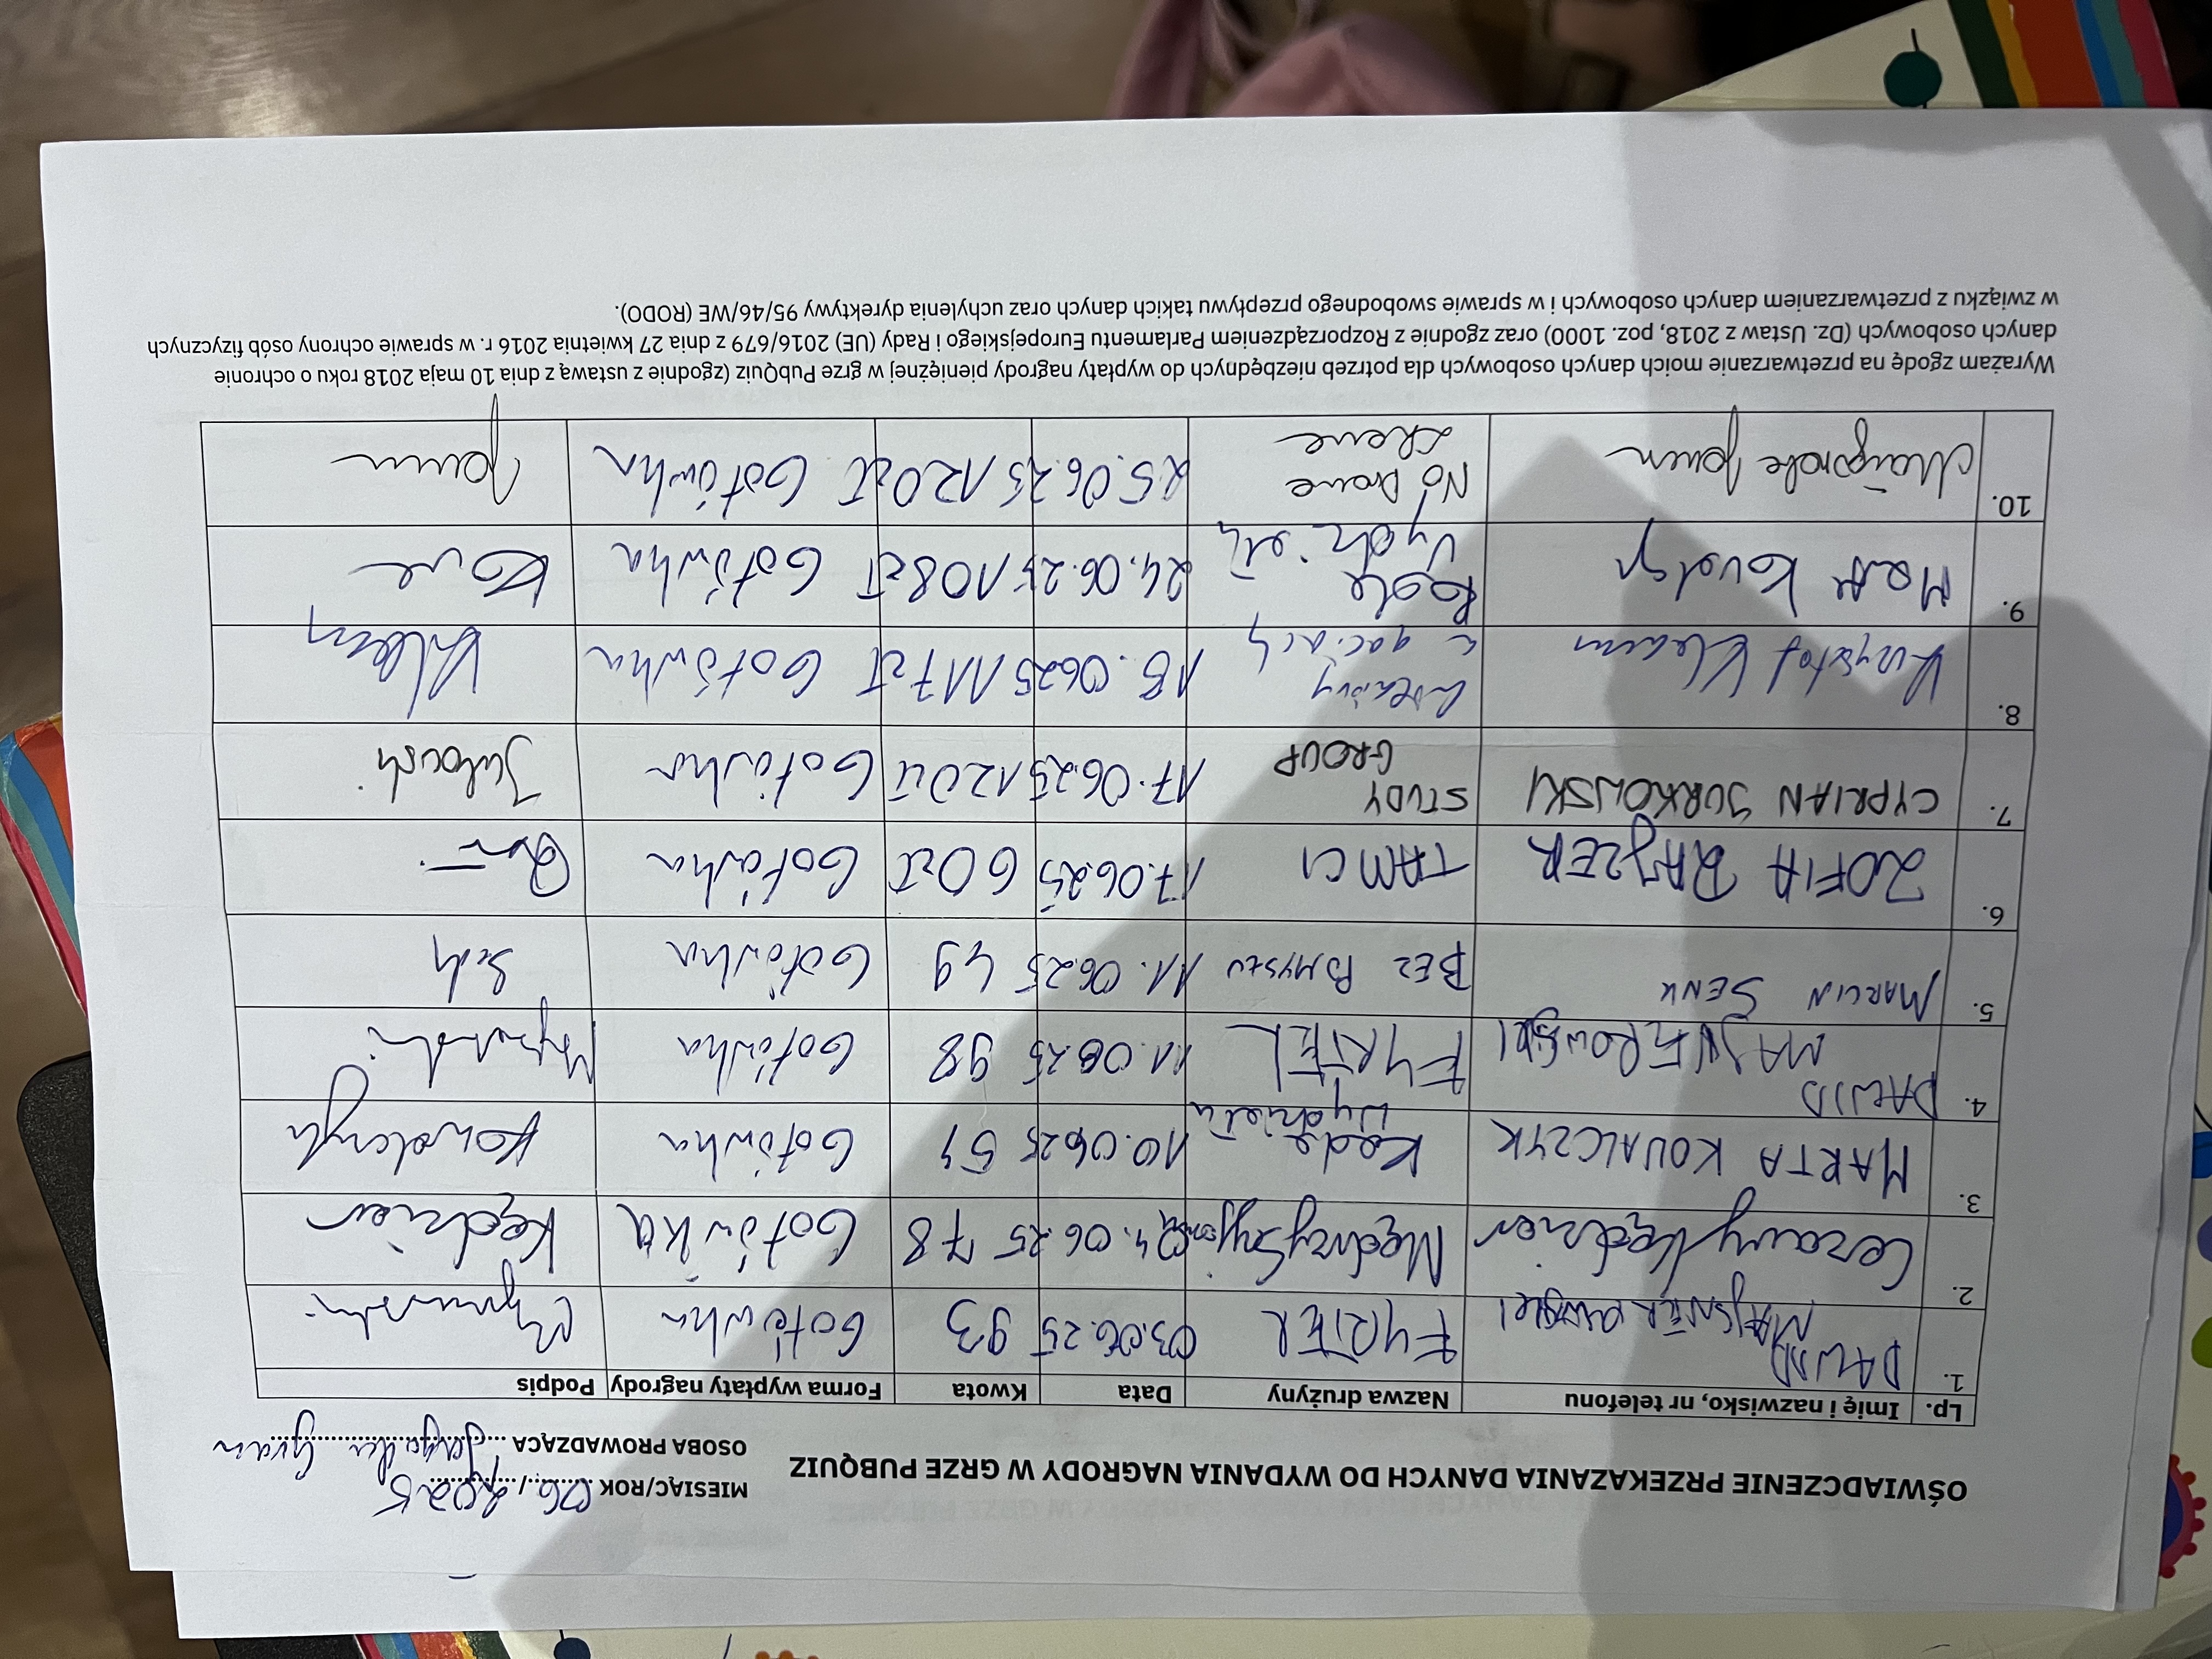 OŚWIADCZENIE PRZEKAZANIA DANYCH DO WYDANIA NAGRODY W GRZE PUBQUIZ
MIESIĄC/ROK 06./2025
OSOBA PROWADZĄCA
Lp. Imię i nazwisko, nr telefonu Nazwa drużyny Data Kwota Forma wypłaty nagrody Podpis
1. DAWID MAJSNEROWSKI FYRTEL 03.06.25 93 Gotówka
2. Cezary Kędzior Mędrzy Syjonu 04.06.25 78 Gotówka Kędzior
3. MARTA KOWALCZYK Koda Wydzielą 10.06.25 51 Gotówka Kowalczyk
4. DAWID MAJSNEROWSKI FYRTEL 11.06.25 98 Gotówka
5. MARCIN SENK BEZ POMYSŁU 11.06.25 49 Gotówka
6. ZOFIA RAJZER TAMCI 17.06.25 60 zł Gotówka
7. CYPRIAN JURKOWSKI STUDY GROUP 17.06.25 120 zł Gotówka Jurkowski
8. Krzysztof Klemm w gaciach 18.06.25 117 zł Gotówka Klemm
9. 24.06.25 108 zł Gotówka
10. No Drove 25.06.25 120 zł Gotówka
Wyrażam zgodę na przetwarzanie moich danych osobowych dla potrzeb niezbędnych do wypłaty nagrody pieniężnej w grze PubQuiz (zgodnie z ustawą z dnia 10 maja 2018 roku o ochronie
danych osobowych (Dz. Ustaw z 2018, poz. 1000) oraz zgodnie z Rozporządzeniem Parlamentu Europejskiego i Rady (UE) 2016/679 z dnia 27 kwietnia 2016 r. w sprawie ochrony osób fizycznych
w związku z przetwarzaniem danych osobowych i w sprawie swobodnego przepływu takich danych oraz uchylenia dyrektywy 95/46/WE (RODO).